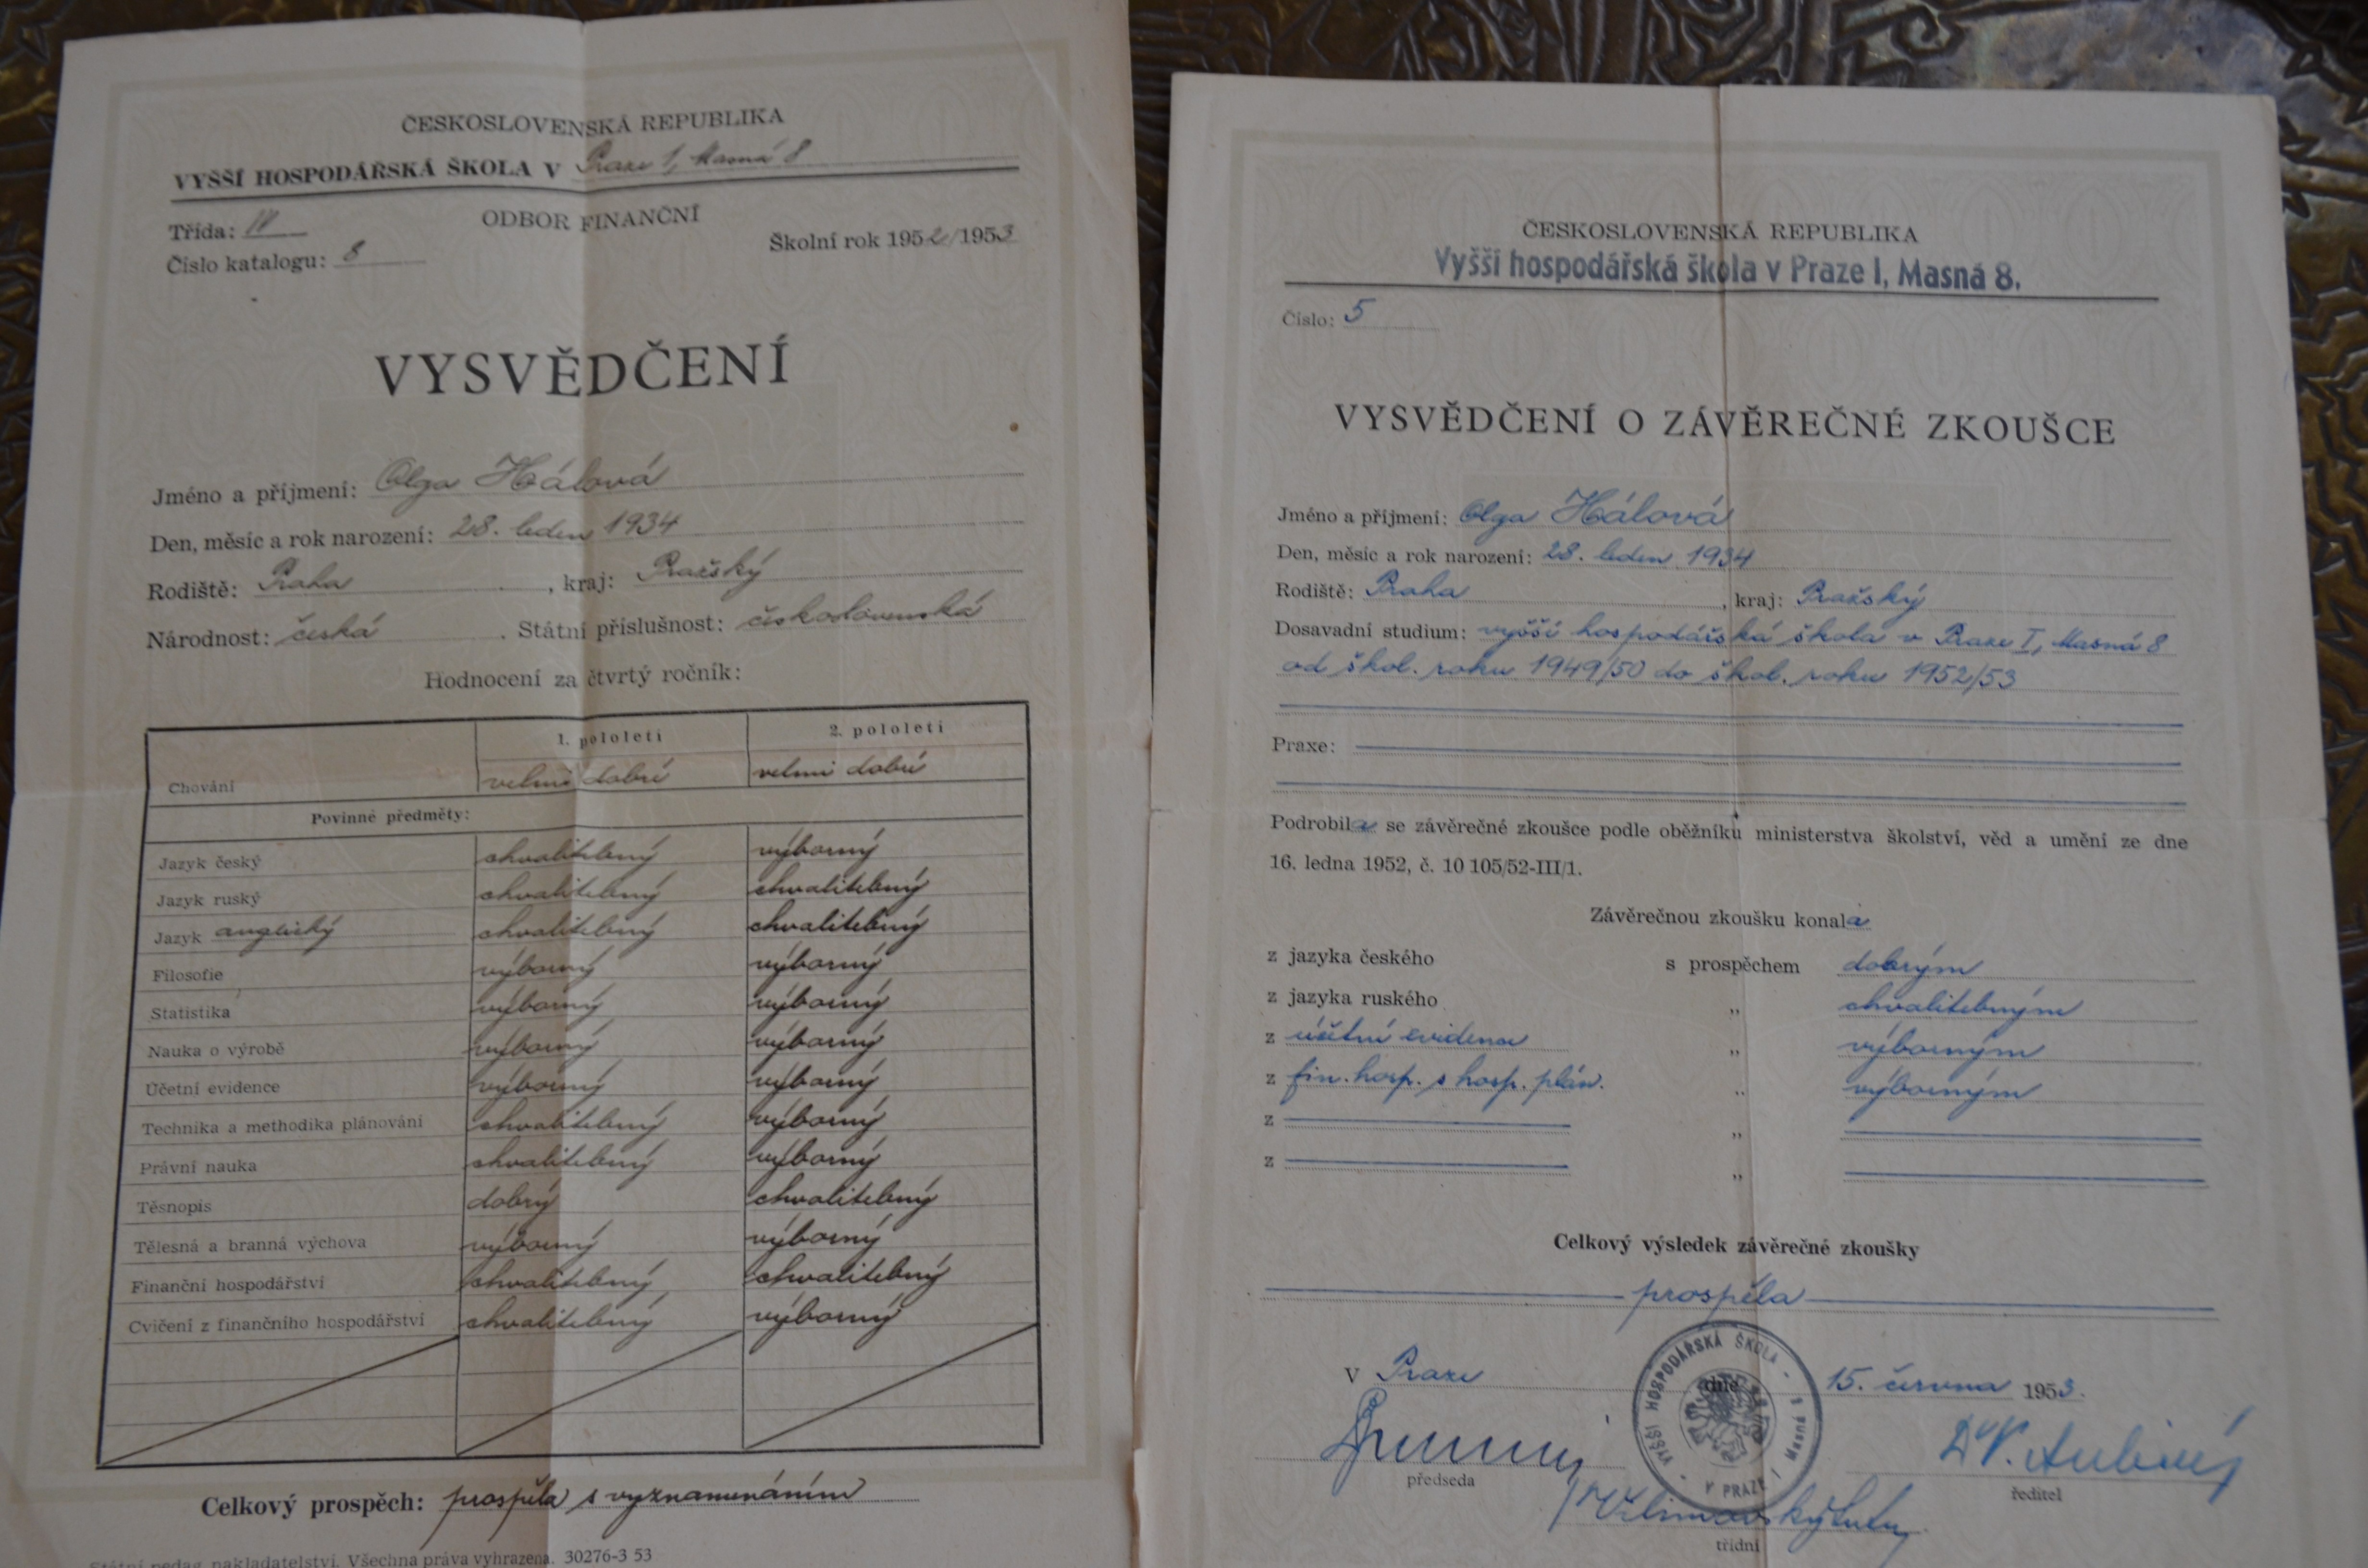 ČESKOSLOVENSKÁ REPUBLIKA
VYŠŠÍ HOSPODÁŘSKÁ ŠKOLA V Praze I, Masná 8
Třída: IV
ODBOR FINANČNÍ
Školní rok 1952/1953
Číslo katalogu: 8
VYSVĚDČENÍ
Jméno a příjmení: Olga Hálová
Den, měsíc a rok narození: 28. leden 1934
Rodiště: Praha, kraj: Pražský
Národnost: česká. Státní příslušnost: československá
Hodnocení za čtvrtý ročník:
1. pololetí 2. pololetí
Chování velmi dobré velmi dobré
Povinné předměty:
Jazyk český chvalitebný výborný
Jazyk ruský chvalitebný chvalitebný
Jazyk anglický chvalitebný chvalitebný
Filosofie výborný výborný
Statistika výborný výborný
Nauka o výrobě výborný výborný
Účetní evidence výborný výborný
Technika a methodika plánování chvalitebný výborný
Právní nauka chvalitebný výborný
Těsnopis dobrý chvalitebný
Tělesná a branná výchova výborný výborný
Finanční hospodářství chvalitebný chvalitebný
Cvičení z finančního hospodářství chvalitebný výborný
Celkový prospěch: prospěla s vyznamenáním
Státní pedag. nakladatelství. Všechna práva vyhrazena. 30276-3 53
ČESKOSLOVENSKÁ REPUBLIKA
Vyšší hospodářská škola v Praze I, Masná 8.
Číslo: 5
VYSVĚDČENÍ O ZÁVĚREČNÉ ZKOUŠCE
Jméno a příjmení: Olga Hálová
Den, měsíc a rok narození: 28. leden 1934
Rodiště: Praha, kraj: Pražský
Dosavadní studium: vyšší hospodářská škola v Praze I, Masná 8
od škol. roku 1949/50 do škol. roku 1952/53
Praxe:
Podrobila se závěrečné zkoušce podle oběžníku ministerstva školství, věd a umění ze dne
16. ledna 1952, č. 10 105/52-III/1.
Závěrečnou zkoušku konala
z jazyka českého s prospěchem dobrým
z jazyka ruského „ chvalitebným
z účetní evidence „ výborným
z fin. hosp. s hosp. plán. „ výborným
z „
z „
Celkový výsledek závěrečné zkoušky
prospěla
V Praze dne 15. června 1953.
VYŠŠÍ HOSPODÁŘSKÁ ŠKOLA
V PRAZE I MASNÁ 8
předseda
ředitel
třídní